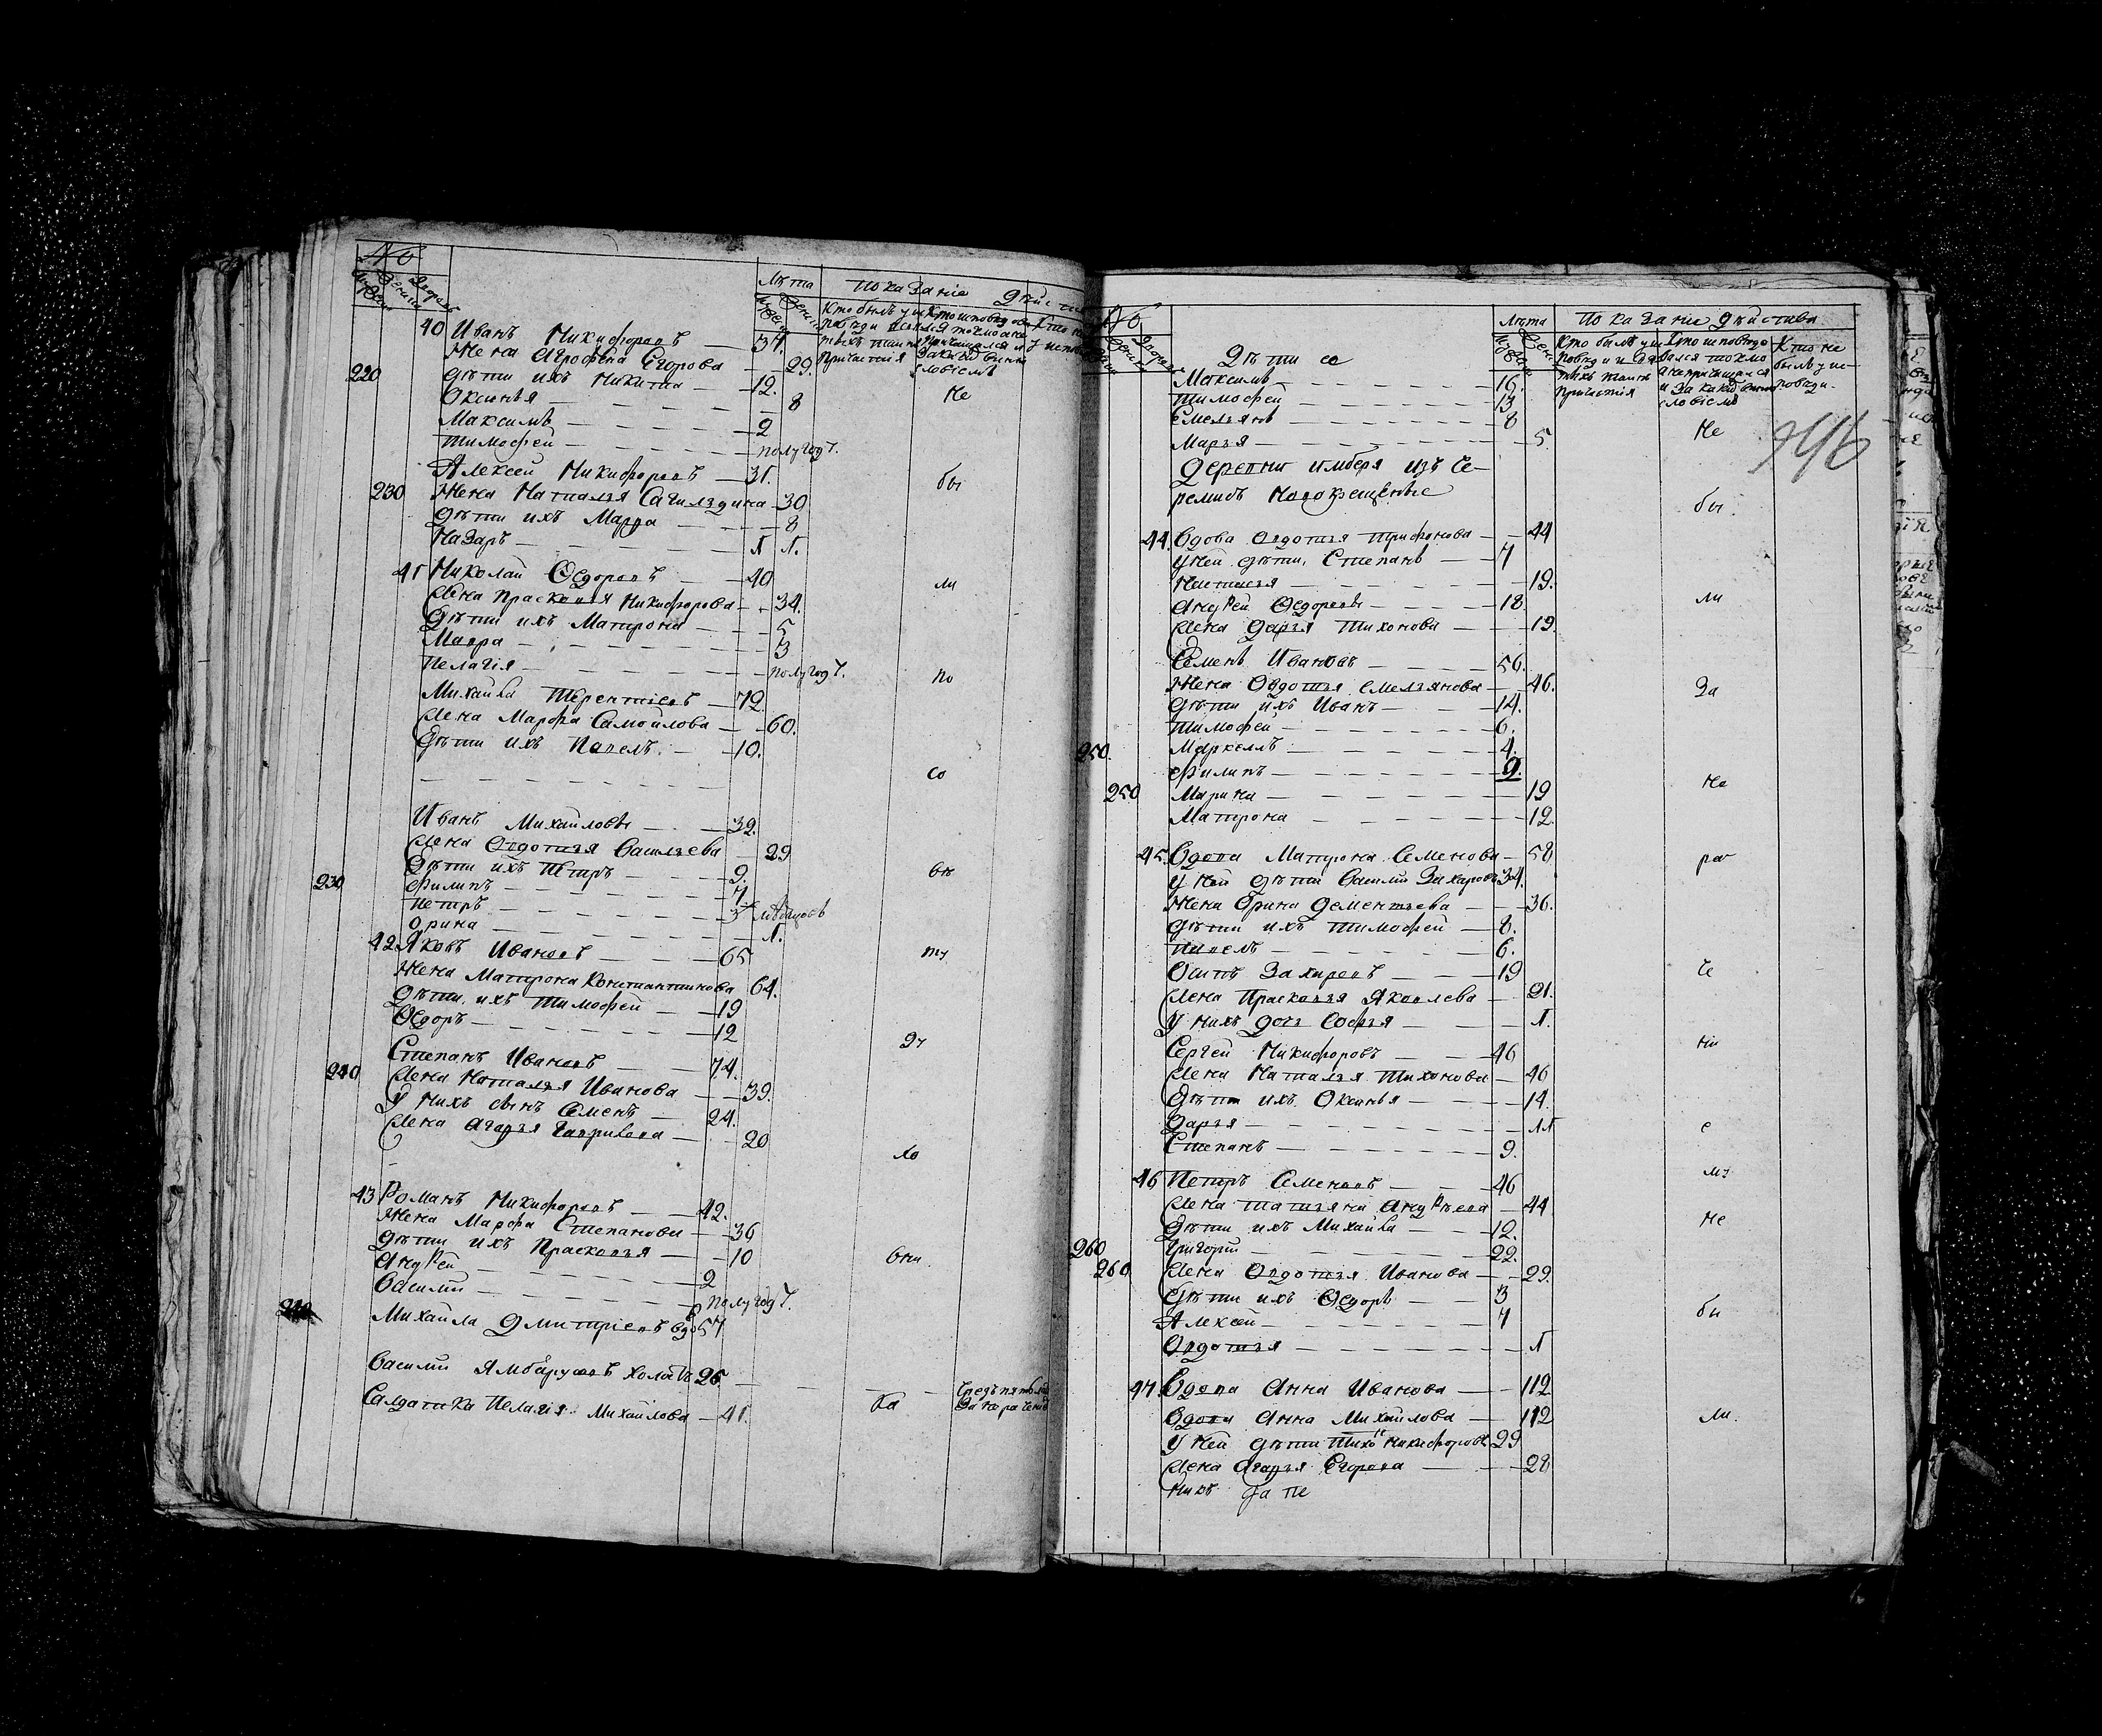 №
Мужеска
Женска
Дворовъ
Лѣта
Показаніе дѣйст
40 Иванъ Никифоровъ — 37.
Жена Агрофена Егорова — 29.
220 Дѣти ихъ Никита — 12.
Оксинья — 8
Не
Максимъ — 2
Тимофей — полугод.
Алексей Никифоровъ — 31.
бы
230 Жена Наталья — 30
Дѣти ихъ Марѳа — 8
Назаръ —
41 Николай Ѳедоровъ — 40
ли
Жена Прасковья Никифорова — 34.
Дѣти ихъ Матрона — 5
Мавра — 3
Пелагія — полугод.
по
Михайла Терентіевъ — 72.
Жена Марфа Самойлова — 60.
Дѣти ихъ Павелъ — 10.
со
Иванъ Михайловъ — 32.
Жена Овдотья Васильева — 29
Дѣти ихъ Петръ — 9.
230 Филипъ — 7
Петръ — 3
Орина — 1.
42 Яковъ Ивановъ — 65
ту
Жена Матрона Константинова 64.
Дѣти ихъ Тимофей — 19
Ѳедоръ — 12
Степанъ Ивановъ — 74.
240 Жена Наталья Иванова — 39.
У нихъ сынъ Семенъ — 24.
Жена Агафья Гаврилова — 20
43 Романъ Никифоровъ — 42.
Жена Марфа Степанова — 36
Дѣти ихъ Прасковья — 10
Андрей — 2
Василий — полугод.
Михайла Дмитріевъ вдо 57
Василий холостъ 26
Салдатка Пелагія Михайлова — 41.
№
Дворовъ
Лѣта
Показаніе дѣйства
Кто былъ у ис-
Кто исповѣдо
Кто не
повѣди и свя
вался токмо
былъ у ис-
тыхъ таинъ
а непричащался
повѣди.
причастія
и за какимъ вино
словіемъ
946
Дѣти ее
Максимъ — 16.
Тимофей — 13
Емельянъ — 8
Марья — 5.
Не
Деревни Имберя изъ Че-
ремисъ новокрещеные
бы.
44. Вдова Овдотья Трифонова — 44
У ней дѣти Степанъ — 7
Наталья — 19.
Андрей Ѳедоровъ — 18
ли
Жена Дарья Тихонова — 19.
Семенъ Ивановъ — 56.
Жена Овдотья Емельянова — 46.
за
Дѣти ихъ Иванъ — 14.
Тимофей — 6.
250. Маркеллъ — 4.
Филипъ — 2.
250 Марина — 19
Не
Матрона — 12.
45. Вдова Матрона Семенова — 58
У ней дѣти Василий Захаровъ 34.
Жена Орина Дементьева — 36.
Дѣти ихъ Тимофей — 8.
Павелъ — 6.
Осипъ Захаровъ — 19
Жена Прасковья Яковлева — 21.
У нихъ дочь Софья — 1.
Сергей Никифоровъ — 46
Жена Наталья Тихонова — 46
Дѣти ихъ Оксинья — 14.
Дарья — 11
е
Степанъ — 9.
46 Петръ Семеновъ — 46
Жена Татьяна Андрѣева — 44
Дѣти ихъ Михайла — 12.
Не
260 Григорий — 22.
260 Жена Овдотья Иванова — 29.
Дѣти ихъ Ѳедоръ — 3
Алексей — 7
бы
Овдотья — 1
47. Вдова Анна Иванова — 112
Вдова Анна Михайлова — 112
ли.
У ней дѣти Тихонъ Никифоровъ 29
Жена Агафья Егорова — 28